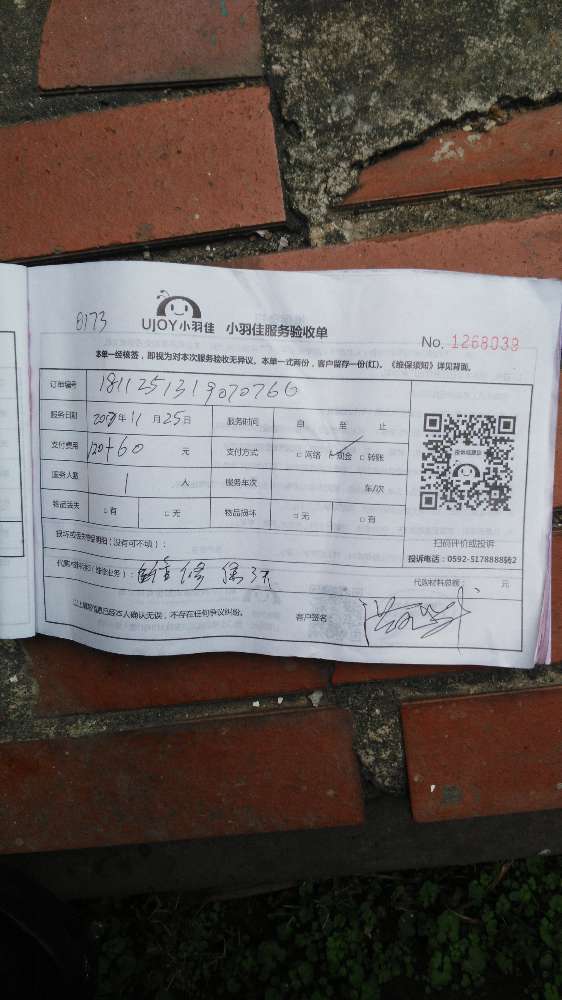 8173
UJOY小羽佳 小羽佳服务验收单
No. 1268038
本单一经核签，即视为对本次服务验收无异议。本单一式两份，客户留存一份(红)。《维保须知》详见背面。
订单编号 181125131907076
服务日期 年 11 月 25 日 服务时间 自 至 止
支付费用 120+60 元 支付方式 □ 网络 ☑ 现金 □ 转账
服务人数 1 人 服务车次 车/次
物品丢失 □ 有 □ 无 物品损坏 □ 无 □ 有
扫码评价或投诉
投诉电话：0592-5178888转2
损坏或丢失物品明细（没有可不填）：
代购材料明细（维修业务）： 修
代购材料总额： 元
以上填写信息已经本人确认无误，不存在任何争议纠纷。 客户签名：